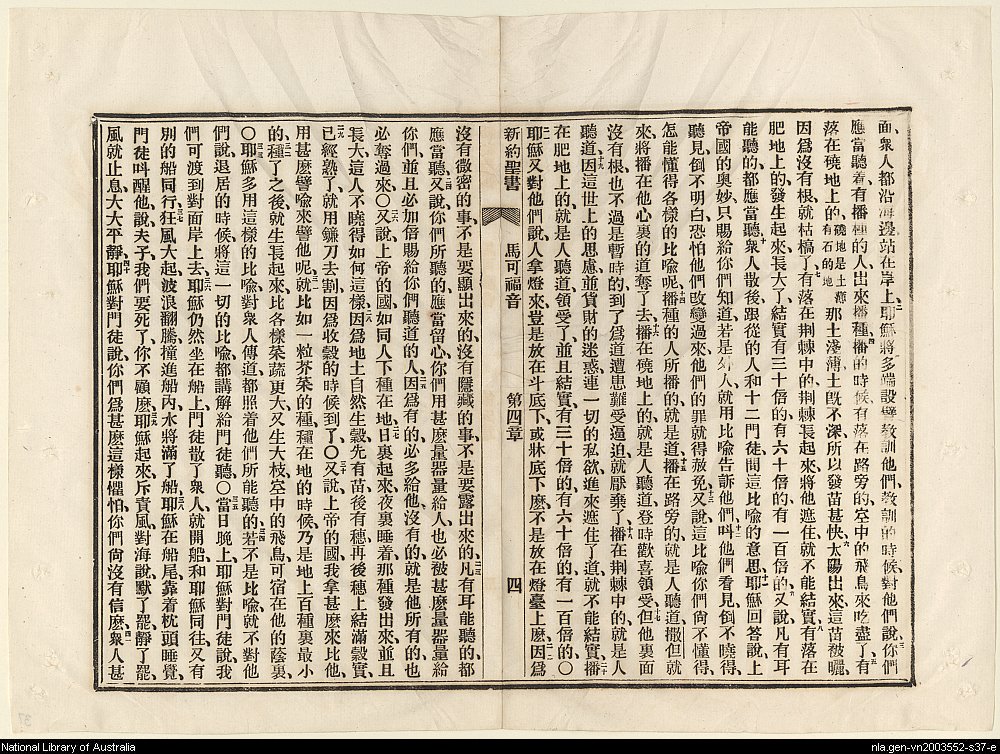 面、衆人都沿海邊站在岸上、二耶穌將多端設譬教訓他們、教訓的時候對他們說、三你們
應當聽、着有播種的人出來播種、四播的時候、有落在路旁的、空中的飛鳥來吃盡了、五有
落在磽地上的、磽地是土薄有石的地那土淺薄、土旣不深、所以發苗甚快、六太陽出來、這苗被曬、
因爲沒有根、就枯槁了、七有落在荆棘中的、荆棘長起來、將他遮住、就不能結實、八有落在
肥地上的、發生起來、長大了、結實有三十倍的、有六十倍的、有一百倍的、九又說、凡有耳
能聽的、都應當聽、十衆人散後、跟從的人和十二門徒、問這比喩的意思、十一耶穌回答說、上
帝國的奧妙、只賜給你們知道、若是外人、就用比喩告訴他們、十二叫他們看見、倒不曉得、
聽見、倒不明白、恐怕他們改變過來、他們的罪就得赦免、十三又說、這比喩你們尙不懂得、
怎能懂得各樣的比喩呢、十四播種的人所播的、就是道、十五播在路旁的、就是人聽道、撒但就
來、將播在他心裏的道奪了去、十六播在磽地上的、就是人聽道、登時歡喜領受、十七但他裏面
沒有根、也不過是暫時的、到了爲道遭患難、受逼迫、就厭棄了、十八播在荆棘中的、就是人
聽道、十九因這世上的思慮、並貨財的迷惑、連一切的私欲、進來遮住了道、就不能結實、二十播
在肥地上的、就是人聽道領受了、並且結實、有三十倍的、有六十倍的、有一百倍的、〇
耶穌又對他們說、人拿燈來、豈是放在斗底下、或牀底下麽、不是放在燈臺上麽、二二因爲
新約聖書 馬可福音 第四章 四
沒有微密的事、不是要顯出來的、沒有隱藏的事、不是要露出來的、二三凡有耳能聽的、都
應當聽、二四又說、你們所聽的、應當留心、你們用甚麽量器量給人、也必被甚麽量器量給
你們、並且必加倍賜給你們聽道的人、二五因爲有的、必多給他、沒有的、就是他所有的、也
必奪過來、〇二六又說、上帝的國、如同人下種在地、二七日裏起來、夜裏睡着、那種發出來、並且
長大、這人不曉得如何這樣、二八因爲地土自然生穀、先有苗、後有穗、再後穗上結滿穀實、
二九已經熟了、就用鐮刀去割、因爲收穀的時候到了、〇三十又說、上帝的國、我拿甚麽來比他、
用甚麽譬喩來譬他呢、三一就比如一粒芥菜的種、種在地的時候、乃是地上百種裏最小
的、三二種了之後、就生長起來、比各樣菜蔬更大、又生大枝、空中的飛鳥可宿在他的蔭裏、
〇三三耶穌多用這樣的比喩、對衆人傳道、都照着他們所能聽的、三四若不是比喩、就不對他
們說、退居的時候、將這一切的比喩、都講解給門徒聽、〇三五當日晚上、耶穌對門徒說、我
們可渡到對面岸上去、三六耶穌仍然坐在船上、門徒散了衆人、就開船和耶穌同往、又有
別的船同行、三七狂風大起、波浪翻騰、撞進船內、水將滿了船、三八耶穌在船尾靠着枕頭睡覺、
門徒叫醒他說、夫子、我們要死了、你不顧麽、三九耶穌起來、斥責風、對海說、默了罷、靜了罷、
風就止息、大大平靜、四十耶穌對門徒說、你們爲甚麽這樣懼怕、你們尙沒有信麽、四一衆人甚
37
National Library of Australia
nla.gen-vn2003552-s37-e